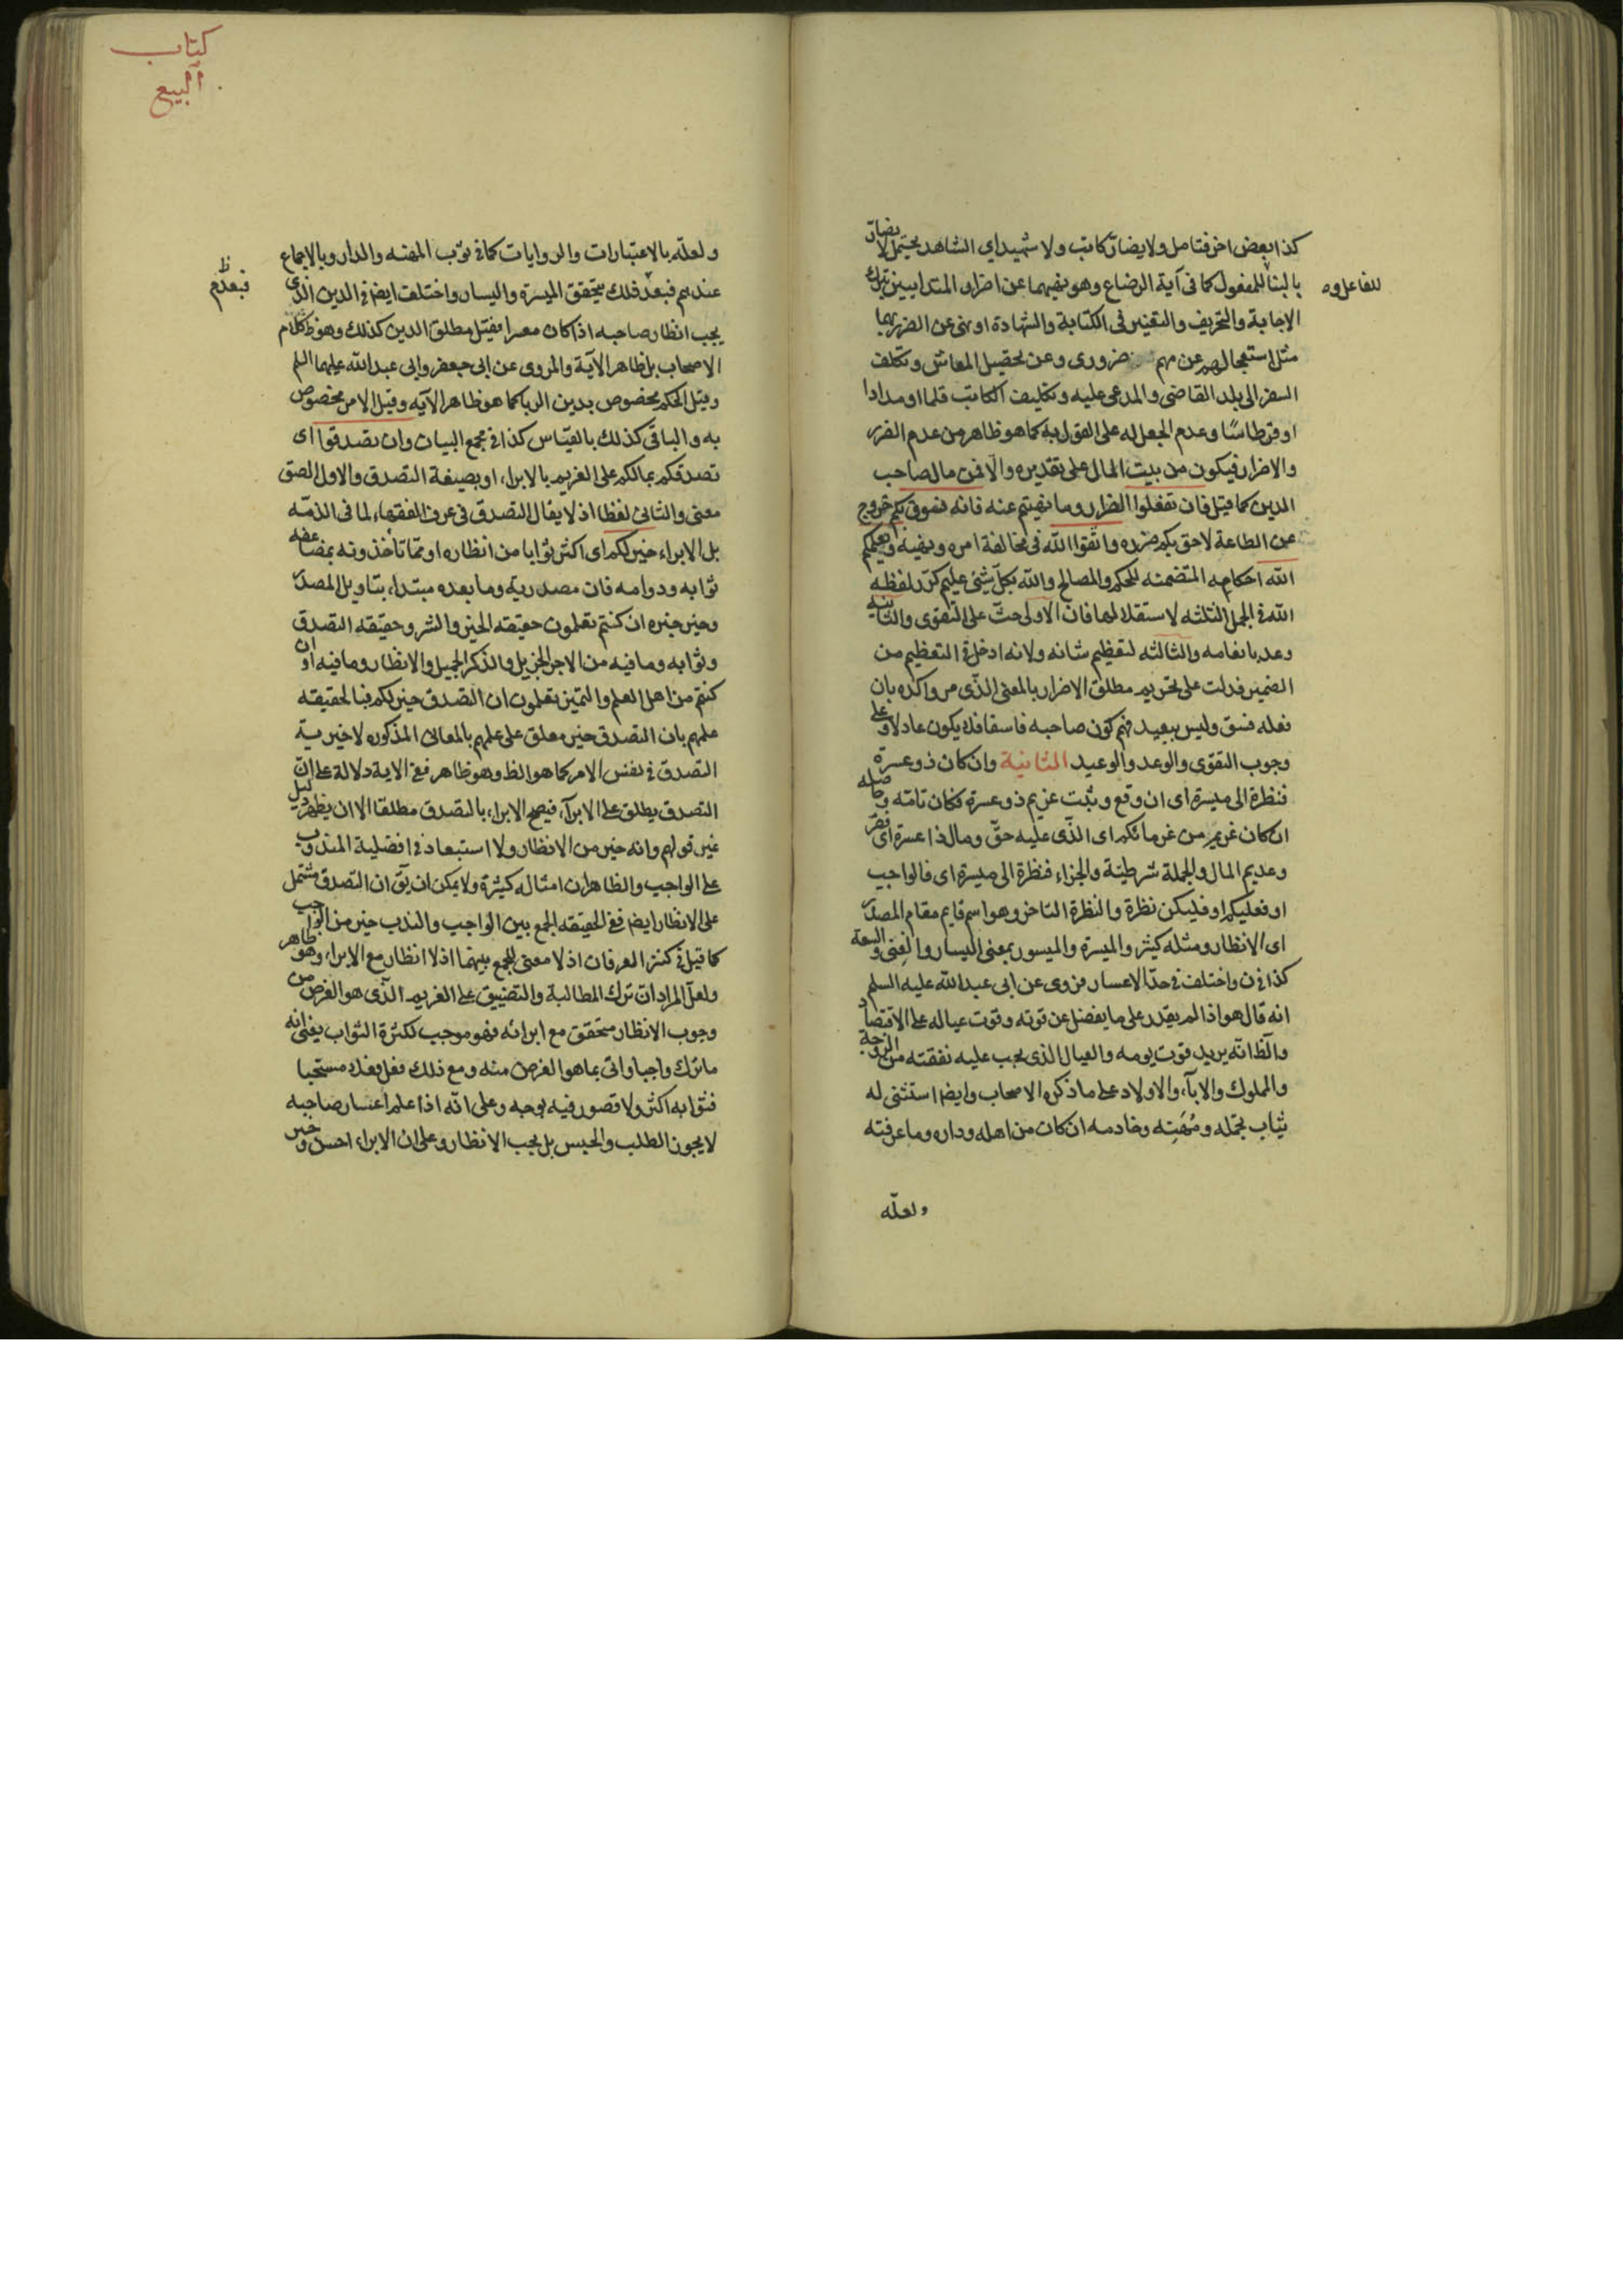 كذا بعض اخر فتامل ولا يضار كاتب ولا شهيد اي الشاهد يحتمل لا يضار
للفاعل و
بالبنا للمفعول كما فى آية الرضاع وهو نهيهما عن اضرار المتداينين بترك
الاجابة والتحريف والتغيير فى الكتابة والشهادة او نهى عن الضرر بهما
مثل استعجالهم عن مهم ضرورى وعن تحصيل المعاش وتكلف
السفر الى بلد القاضى والمدعى عليه وتكليف الكاتب قلما او مدادا
او قرطاسًا وعدم الجعل له على القول به كما هو ظاهر من عدم الضرر
والاضرار فيكون من بيت المال على تقديره والّا فمن مال صاحب
الدين كما قيل فان تفعلوا الضرار وما نهيتم عنه فانه فسوق بكم خروج
عن الطاعة لاحق بكم ضرره واتقوا الله فى مخالفة امره ونهيه ويعلمكم
الله احكامه المتضمنه للحكم والمصالح والله بكلّ شئى عليم كرّر لفظه
الله فى الجمل الثلثه لاستقلالها فان الاولى حثّ على التقوى والثانيه
وعد بانعامه والثالثه لتعظيم شانه ولانه ادخل فى التعظيم من
الضمير فدلت على تحريم مطلق الاضرار بالمعنى الذّى مر واكده بان
فعله فسق وليس ببعيد فهم كون صاحبه فاسقا فلا يكون عادلا وعلى
وجوب التقوى والوعد والوعيد الثانية وان كان ذو عسرة
فنظرة الى ميسرة اى ان وقع وثبت غريم ذو عسرة فكان تامّه وحاصله
ان كان غريم من غرمائكم اى الذّى عليه حقّ ومال ذا عسرة اى فقر
وعديم المال والجملة شرطيّة والجزاء فنظرة الى ميسرة اى فالواجب
او فعليكم او فليكن نظرة والنظرة التاخر وهو اسم قايم مقام المصدر
اى الانظار ومثله كثير والميسرة والميسور بمعنى اليسار والغنى والسعة
كذا فى ن واختلف فى حدّ الاعسار فروى عن ابى عبد الله عليه السلم
انه قال هو اذا لم يقدر على ما يفضل عن قوته وقوت عياله على الاقتصاد
والظ انّه يريد قوت يومه والعيال الذى يجب عليه نفقته من الزوجة
والمملوك والابآء والاولاد على ما ذكره الاصحاب وايضا استثنى له
ثياب تجمّله ومُهَنِته وخادمه ان كان من اهله وداره وما عرفته
ولعلّه
كتاب
البيع
ولعلّه بالاعتبارات والروايات كما فى ثوب المهنه والدار وبالاجماع
عندهم فبعد ذلك يتحقق الميسرة واليسار واختلف ايضا فى الدين الذى
فبعدم
ظ
يجب انظار صاحبه اذا كان معسرا فقيل مطلق الدين كذلك وهو ظ كلام
الاصحاب بل ظاهر الآية والمروى عن ابى جعفر وابى عبد الله عليهما السلم
وقيل الحكم مخصوص بدين الربا كما هو ظاهر الآيه وقيل الامر مخصوص
به والباقى كذلك بالقياس كذا فى مجمع البيان وان تصدقوا اى
تصدقكم بمالكم على الغريم بالابراء او بصيغة التصدق والاول الصق
معنى والثانى لفظا اذ لا يقال التصدق فى عرف الفقهاء لما فى الذمّه
بل الابراء خير لكم اى اكثر ثوابا من انظاره او ممّا تاخذونه بمضاعفه
ثوابه ودوامه فان مصدرية وما بعده مبتداء بتاويل المصدر
وخير خبره ان كنتم تعلمون حقيقه الخير والشر وحقيقه التصدق
وثوابه وما فيه من الاجر الجزيل والذكر الجميل والانظار وما فيه او ان
كنتم من اهل العلم والتميز تعلمون ان التصدق خير لكم فبالحقيقه
علمهم بان التصدق خير معلق على علمهم بالمعانى المذكوره لا خيرية
التصدق فى نفس الامر كما هو الظ وهو ظاهر ففى الاية دلالة على انّ
التصدق يطلق على الابرآء فيصح الابراء بالتصدق مطلقا الا ان يظهر دليل
غير قولهم وانه خير من الانظار ولا استبعاد فى افضلية المندوب
على الواجب والظاهر ان امثاله كثيرة ولا يمكن ان يق ان التصدق مشتمل
على الانظار ايضا ففى الحقيقه الجمع بين الواجب والندب خير من الواجب
كما قيل فى كنز العرفان اذ لا معنى للجمع بينهما اذ لا انظار مع الابراء وهو ظاهر
ولعلّ المراد ان ترك المطالبة والتضييق على الغريم الذّى هو الغرض من
وجوب الانظار متحقق مع ابرائه فهو موجب لكثرة الثواب يعنى انه
ما ترك واجبا واتى بما هو الغرض منه ومع ذلك فعل فعلا مستحبا
فثوابه اكثر ولا قصور فيه بوجه وعلى انّه اذا علم اعسار صاحبه
لا يجوز الطلب والحبس بل يجب الانظار وعلى ان الابراء احسن وخير